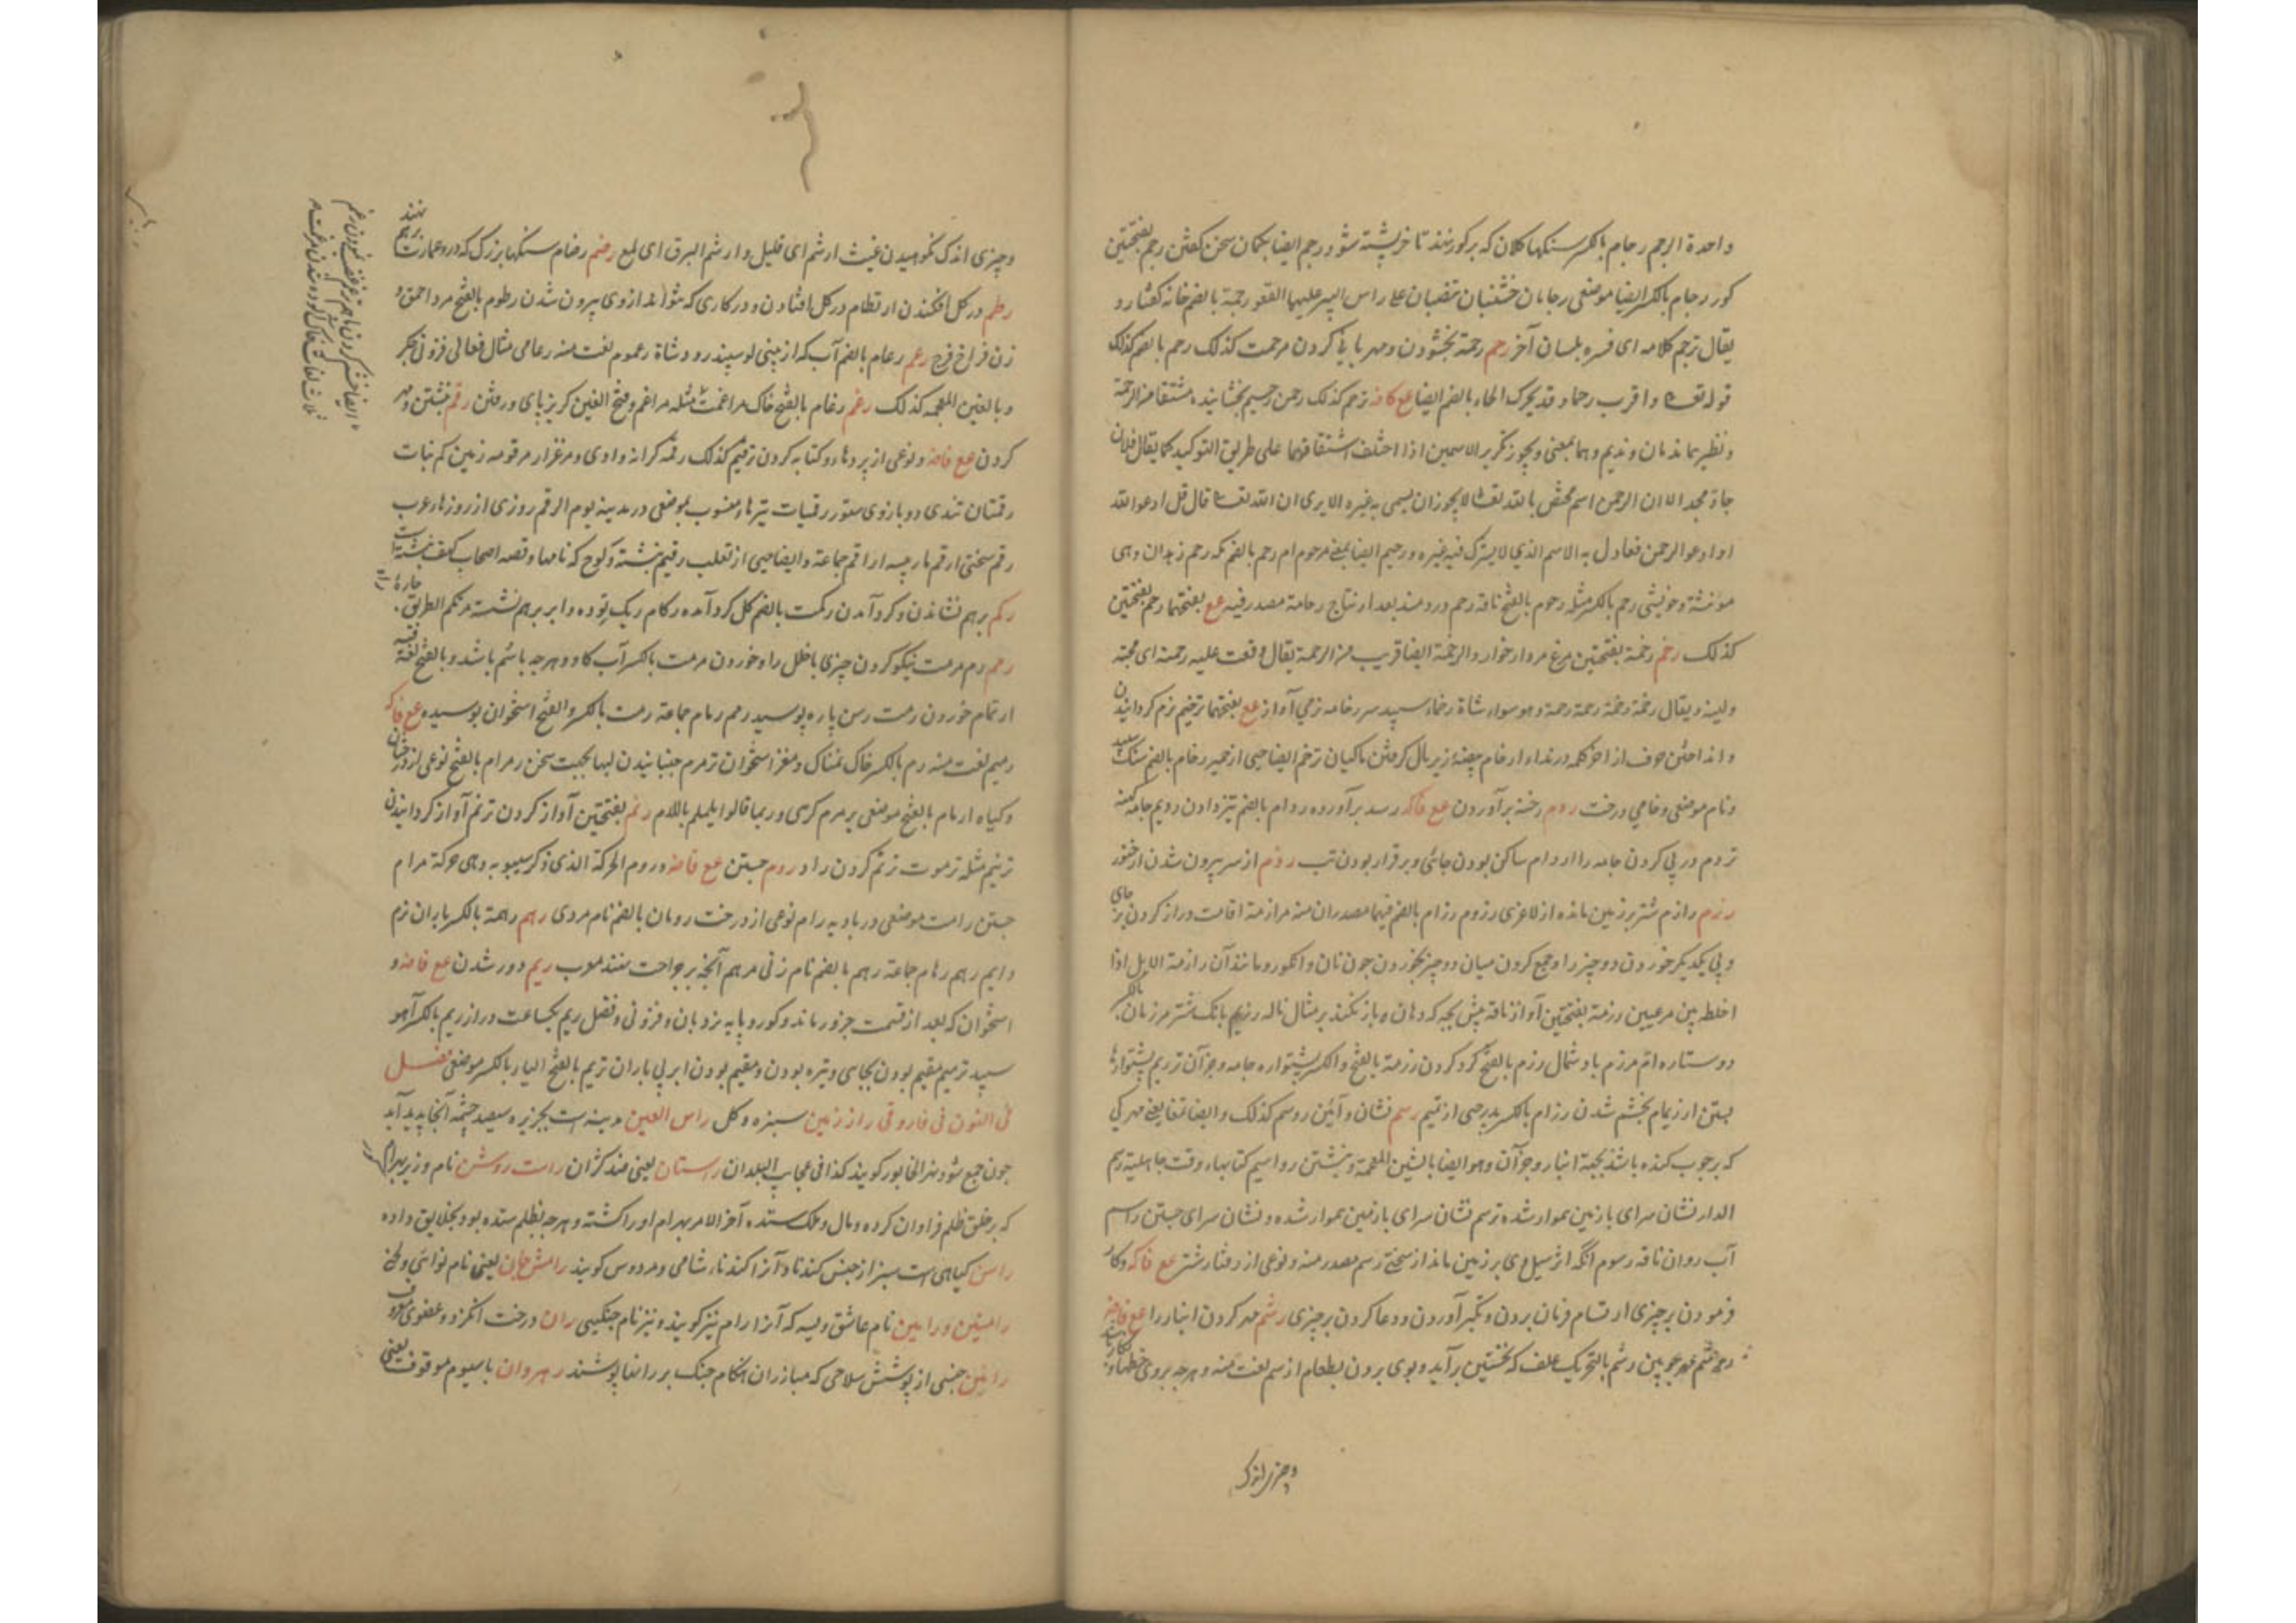 واحدة الرجم رجام بالکسر سنکهاء کلان که بر کور نهند تا خرپشته شود و رجم ایضا بکمان سخن کفتن رجم بفتحتین
کور رجام بالکسر ایضا موضعی رجامان خشبتان تنصبان علی راس البیر علیهما القعو رجمة بالضم خانه کفتار و
یقال ترجم کلامه ای فسره بلسان آخر رحم رحمة بخشودن و مهربانی کردن مرحمت کذلک رحم بالضم کذلک
قوله تعا و اقرب رحما و قد یحرک الحاء بالضم ایضا مع فا منه ترحم کذلک رحمن رحیم بخشاینده مشتقا من الرحمة
و نظیرهما ندمان و ندیم و هما بمعنی و یجوز تکریر الاسمین اذا اختلف اشتقاقهما علی طریق التوکید کما یقال فلان
جاد مجد الا ان الرحمن اسم مختص بالله تعا لا یجوز ان یسمی به غیره الا یری ان الله تعا قال قل ادعوا الله
او ادعوا الرحمن فعادل به الاسم الذی لا یشرک فیه غیره و رحیم ایضا بمعنی مرحوم ام رحم بالضم مکه رحم زهدان وهی
مونثة و خویشی رحم بالکسر مثله رحوم بالفتح ناقه رحم دردمند بعد از نتاج رحامة مصدر فیه مع بفتحتها رحم بفتحتین
کذلک رخم رخمة بفتحتین مرغ مردار خوار و الرخمة ایضا قریب من الرحمة یقال وقعت علیه رخمته ای محبته
ولینه و یقال رخمة رخمة رحمة رحمة و هو سواء شاة رخماء سپید سر رخامه نرمی آواز مع بفتحتها ترخیم نرم کردانیدن
و انداختن حرف از آخر کلمه در نداء ارخام بیضه زیر بال کرفتن ماکیان ترخم ایضا حیی از حمیر رخام بالضم سنک سپید
و نام موضعی و خامی درخت ردم رخنه برآوردن مع فا که رسد برآورده ردام بالضم تیز دادن ردیم جامه کهنه
تردم در پی کردن جامه را اردام ساکن بودن جائی و برقرار بودن تب رذم از سر بیرون شدن از خنور
رزم رازم شتر بر زمین مانده از لاغری رزوم رزام بالضم فیهما مصدران منه مرازمة اقامت دراز کردن بر جای
و پی یکدیکر خوردن دو چیز را و جمع کردن میان دو چیز بخوردن چون نان و انکور و مانند آن رازمة الابل اذا
اخلط بین مرعیین رزمة بفتحتین آواز ناقه پیش بچه که دهان باز نکند بر مثال ناله رزیم بانک شتر مرزمان بالکسر
دو ستاره ام مرزم باد شمال رزم بالفتح کرد کردن رزمة بالفتح و الکسر پشتواره جامه و جز آن ترزیم پشتوارها
بستن ارزیمام بخشم شدن رزام بالکسر پدر حیی از تمیم رسم نشان و آئین روسم کذلک و ایضا تمغا یعنی مهر کی
که بر چوب کنده باشند بجهة انبار و جز آن و هو ایضا بالشین المعجمة و نبشتن رواسیم کتابهاء وقت جاهلیة رسم
الدار نشان سرای با زمین هموار شده ترسم نشان سرای با زمین هموار شده و نشان سرای جستن راسم
آب روان ناقه رسوم آنکه اثر سپل وی بر زمین ماند از سختی رسم مصدر منه و نوعی از رفتار شتر مع فا که و کار
فرمودن بر چیزی ارتسام فرمان بردن و تکبیر آوردن و دعا کردن بر چیزی رشم مهر کردن انبار را مع فا منه
رشم بالتحریک علف که نخستین برآید و بوی بردن بطعام ارشم نعت منه و هرچه بر وی خطها و
و چیزی اندک
و چیزی اندک نکوهیدن غیث ارشم ای قلیل و ارشم البرق ای لمع رضم رضام سنکهاء بزرک که در و عمارت بر هم نهند
رطم در کل افکندن ارتطام در کل افتادن و در کاری که نتواند از وی بیرون شدن رطوم بالفتح مرد احمق و
زن فراخ فرج رعم رعام بالضم آب که از بینی کوسپند رود شاة رعوم نعت منه رعامی مثال فعالی فزونی جکر
و بالغین المعجمه کذلک رغم رغام بالفتح خاک مراغمت مثله مراغم و فتح الغین کریز پای و رفتن رقم نبشتن و مهر
کردن مع فا منه و نوعی از برودها و کتابه کردن ترقیم کذلک رقمه کرانه وادی و مرغزار مرقومه زمین کم نبات
رقمتان تندی دو بازوی ستور رقمیات تیرهاء منسوب بموضعی در مدینه یوم الرقم روزی از روزهاء عرب
رقم سختی ارقم مار پیسه اراقم جماعة و ایضا حیی از تغلب رقیم نبشته و لوح که نامها و قصه اصحاب کهف نبشته است
رکم برهم نشاندن و کرد آمدن رکمت بالضم کل کرد آمده رکام ریک توده و ابر برهم نشسته مرتکم الطریق جادة
رمم رم مرمت نیکو کردن چیزی با خلل را و خوردن مرمت بالکسر آب کاو و هرچه با سم باشد و بالفتح لغة فیه
ارتمام خوردن رمت رسن پاره پوسیده رمم رمام جماعة رمت بالکسر و الفتح استخوان پوسیده مع فا که
رمیم نعت منه رم بالکسر خاک نمناک و مغز استخوان ترمرم جنبانیدن لبها بجهت سخن رمرام بالفتح نوعی از درختان
و کیاه ارمام بالفتح موضعی یرمرم کوهی و ربما قالوا یلملم باللام رنم بفتحتین آواز کردن ترنم آواز کردانیدن
ترنیم مثله ترنموت ترنم کردن را و روم جستن مع فا منه و روم الحرکة الذی ذکر سیبویه و هی حرکة مرام
جستن رامت موضعی در بادیه رام نوعی از درخت رومان بالضم نام مردی رهم رهمة بالکسر باران نرم
دایم رهم رهام جماعة رهم بالضم نام زنی مرهم آنچه بر جراحت نهند معرب ریم دور شدن مع فا منه و
استخوان که بعد از قسمت جزور ماند و کور و پایه نردبان و فزونی و فضل ریم بجماعت دراز ریم بالکسر آهو
سپید ترمیم مقیم بودن بجای و تیره بودن و مقیم بودن ابر پی باران تریم بالفتح الیاء بالکسر موضعی فصل
فی النون فی فاروقی راز زمین سبزه و کل راس العین مدینه است بجزیره سیصد چشمه آنجا پدید آید
چون جمع شود نهر الخابور کویند کذا فی عجایب البلدان راستان یعنی ضد کژان راست روشن نام وزیر بهرام کور
که بر خلق ظلم فراوان کرده و مال و ملک ستده آخر الامر بهرام او را کشته و هرچه بظلم ستده بود بخلایق داده
راسن کیاهی است سبز از جنس کندنا و آنرا کندناء شامی و مردوس کویند رامش جان یعنی نام نوائی و لحنی
رامتین و رامین نام عاشق ویسه که آنرا رام نیز کویند و نیز نام چنکیی ران درخت انکزد و عضوی معروف
رانین جنسی از پوشش سلاحی که مبارزان هنکام جنک بر رانها پوشند رهروان با سیوم موقوف یعنی